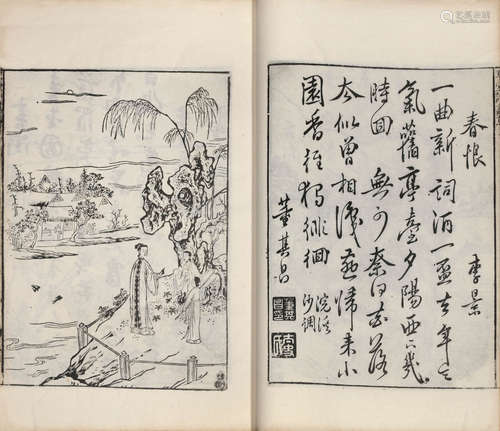 春恨 李景
一曲新詞酒一盃去年天
氣舊亭臺夕陽西下幾
時回 無可奈何花落
去似曾相識燕歸来小
園香徑獨徘徊
浣溪
沙調
董其昌